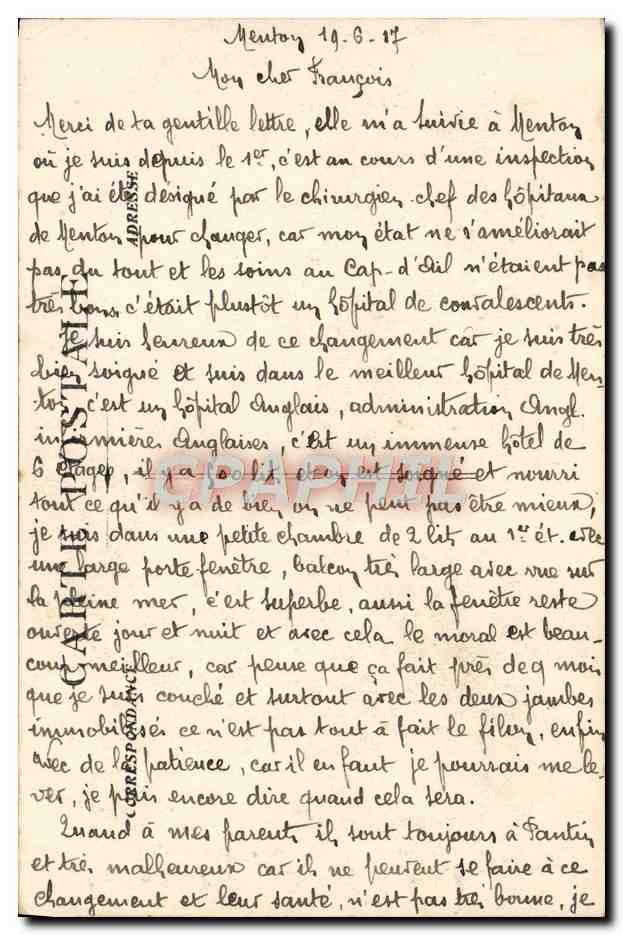 Menton 19-6-17
Mon cher François
Merci de ta gentille lettre, elle m'a suivie à Menton
où je suis depuis le 1er, c'est au cours d'une inspection
que j'ai été désigné par le chirurgien chef des hôpitaux
de Menton pour changer, car mon état ne s'améliorait
pas du tout et les soins au Cap-d'Ail n'étaient pas
très bons, c'était plustôt un hôpital de convalescents.
Je suis heureux de ce changement car je suis très
bien soigné et suis dans le meilleur hôpital de Men-
ton, c'est un hôpital Anglais, administration Angl.
infirmières Anglaises, c'est un immense hôtel de
6 étages, il y a lit, et on est soigné et nourri
tout ce qu'il y a de bien, on ne peut pas être mieux,
je suis dans une petite chambre de 2 lits au 1er ét. avec
une large porte fenêtre, balcon très large avec vue sur
la pleine mer, c'est superbe, aussi la fenêtre reste
ouverte jour et nuit et avec cela le moral est beau-
coup meilleur, car pense que ça fait près de 9 mois
que je suis couché et surtout avec les deux jambes
immobilisés ce n'est pas tout à fait le filon, enfin
avec de la patience, car il en faut je pourrais me le-
ver, je puis encore dire quand cela sera.
Quand à mes parents ils sont toujours à Pantin
et très malheureux car ils ne peuvent se faire à ce
changement et leur santé, n'est pas très bonne, je
CARTE POSTALE
CORRESPONDANCE
ADRESSE
CPAPHIL